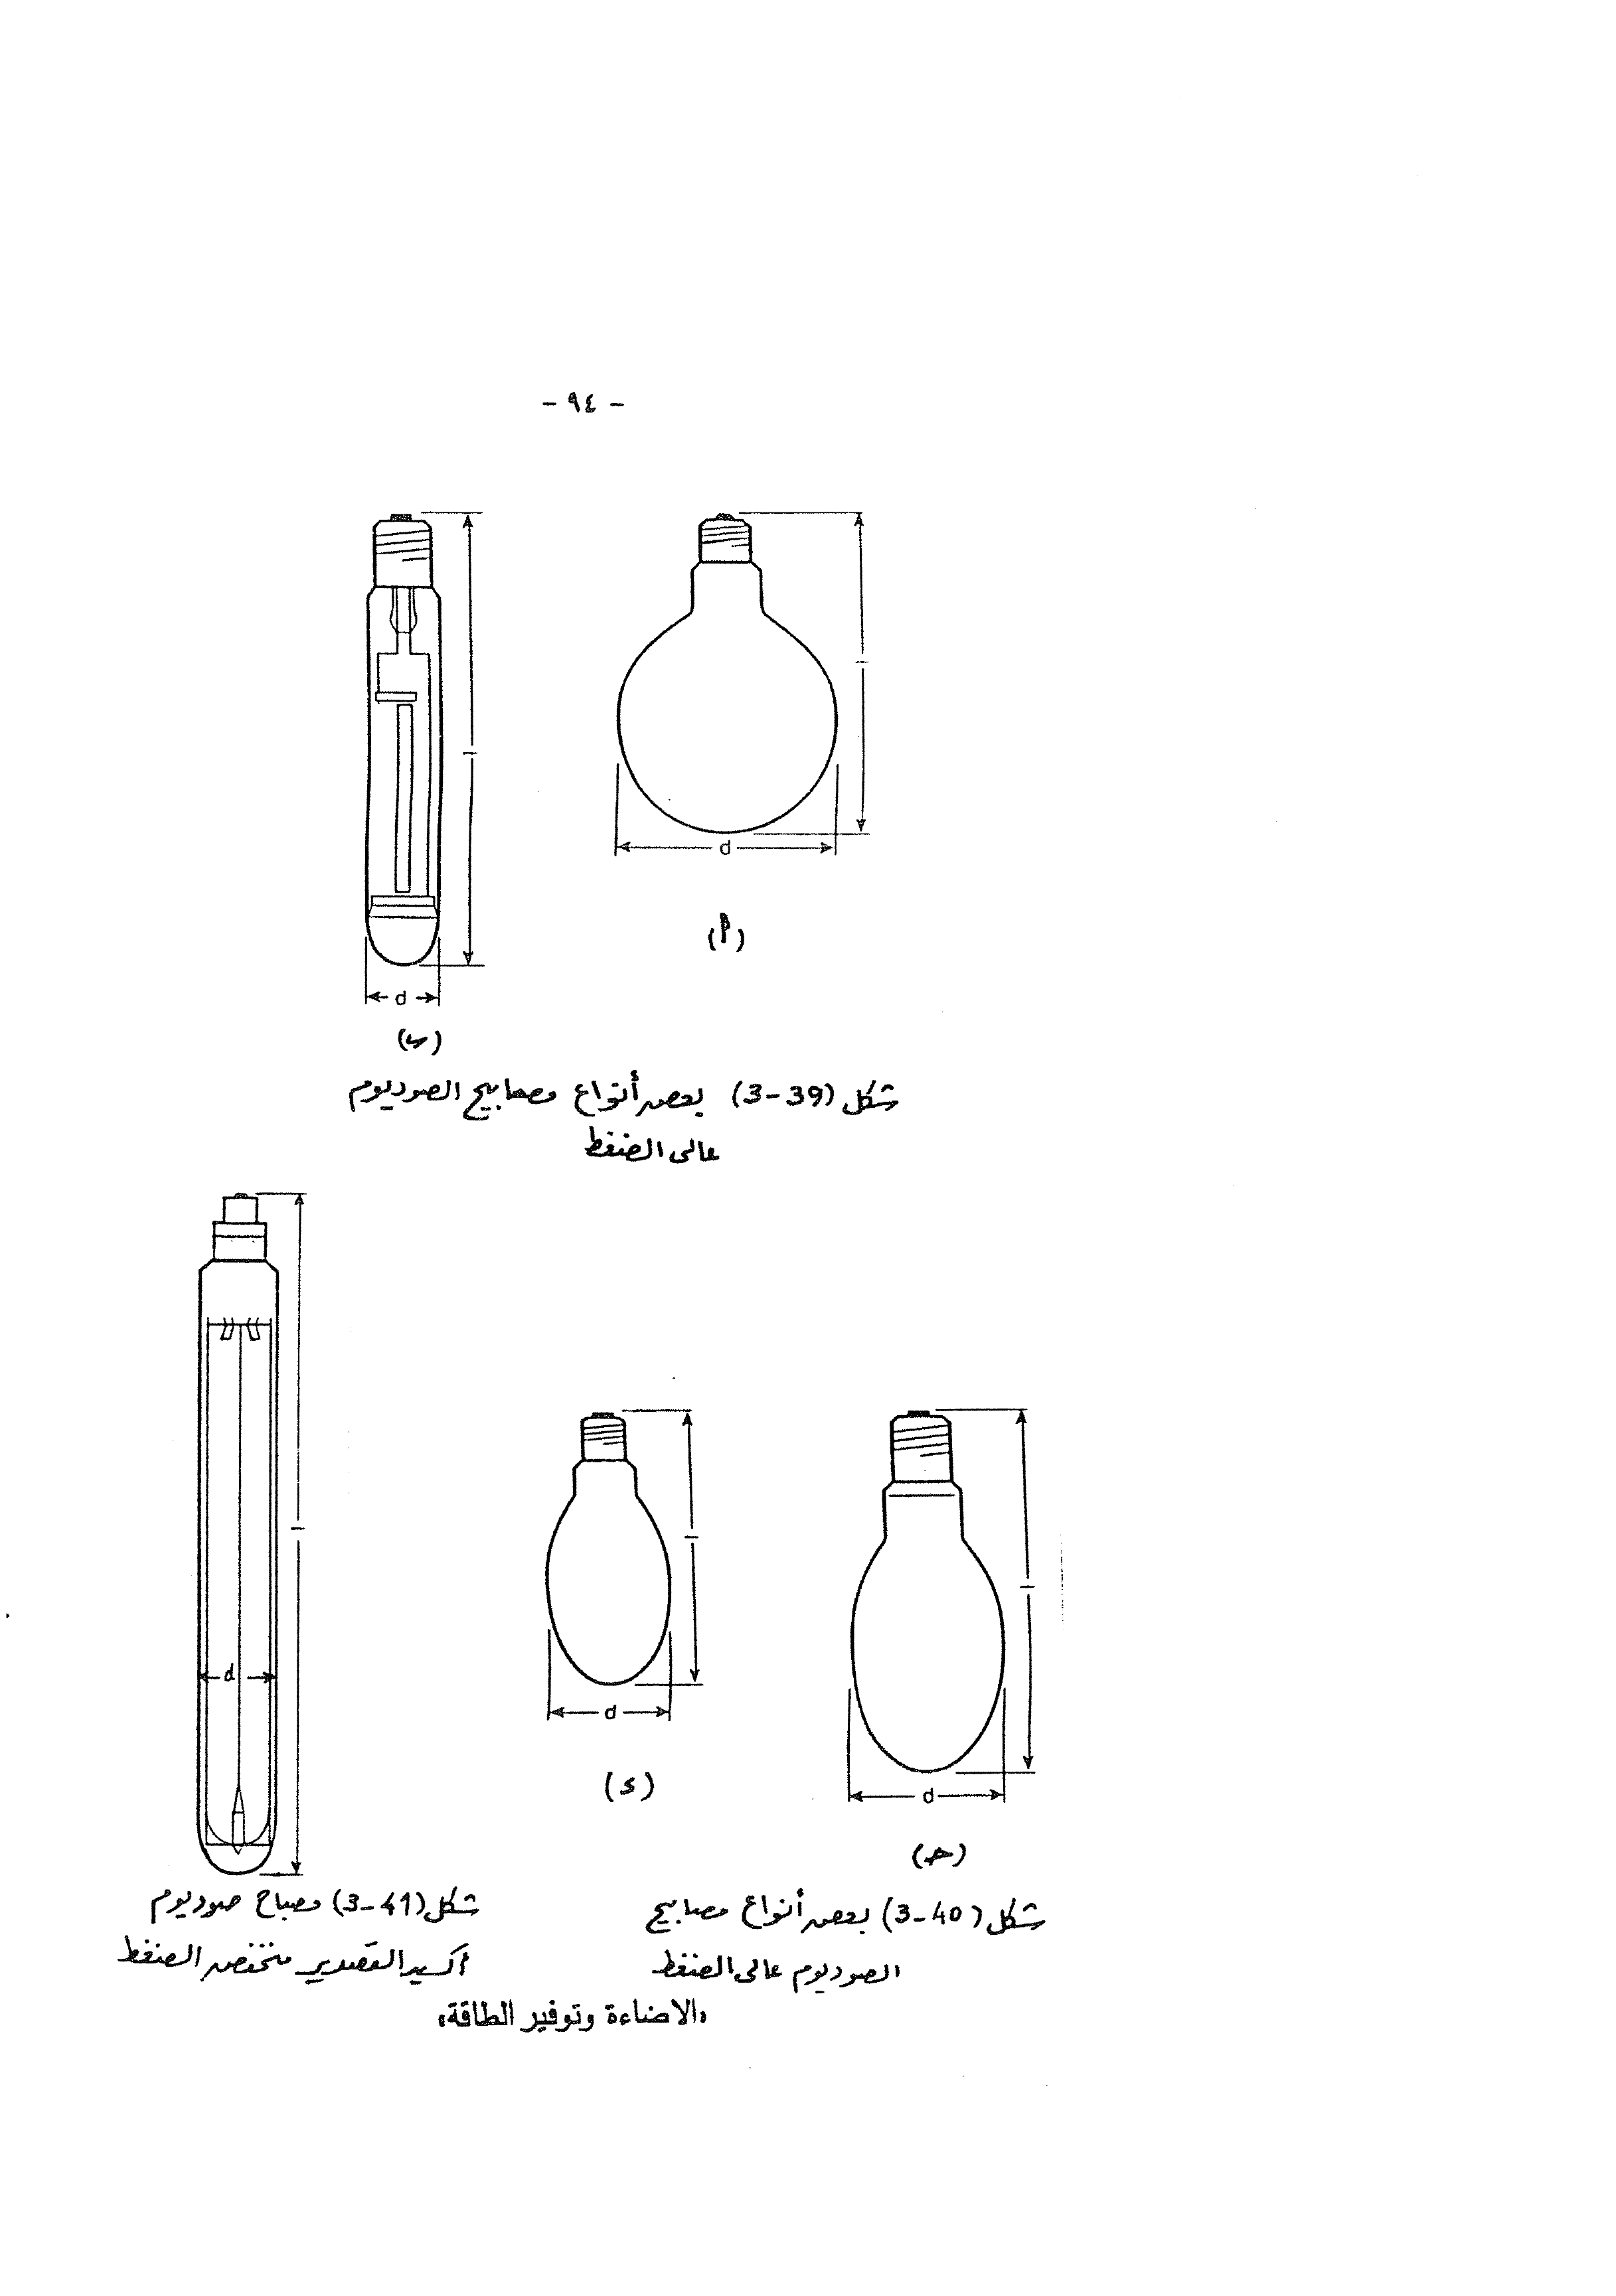 - ٩٤ -
l
l
d
(أ)
d
(ب)
شكل (3-39) بعض أنواع مصابيح الصوديوم
عالى الضغط
l
l
l
d
d
d
(د)
(حـ)
شكل (3-40) بعض أنواع مصابيح
الصوديوم عالى الضغط
شكل (3-41) مصباح صوديوم
أكسيد القصدير منخفض الضغط
«الاضاءة وتوفير الطاقة»